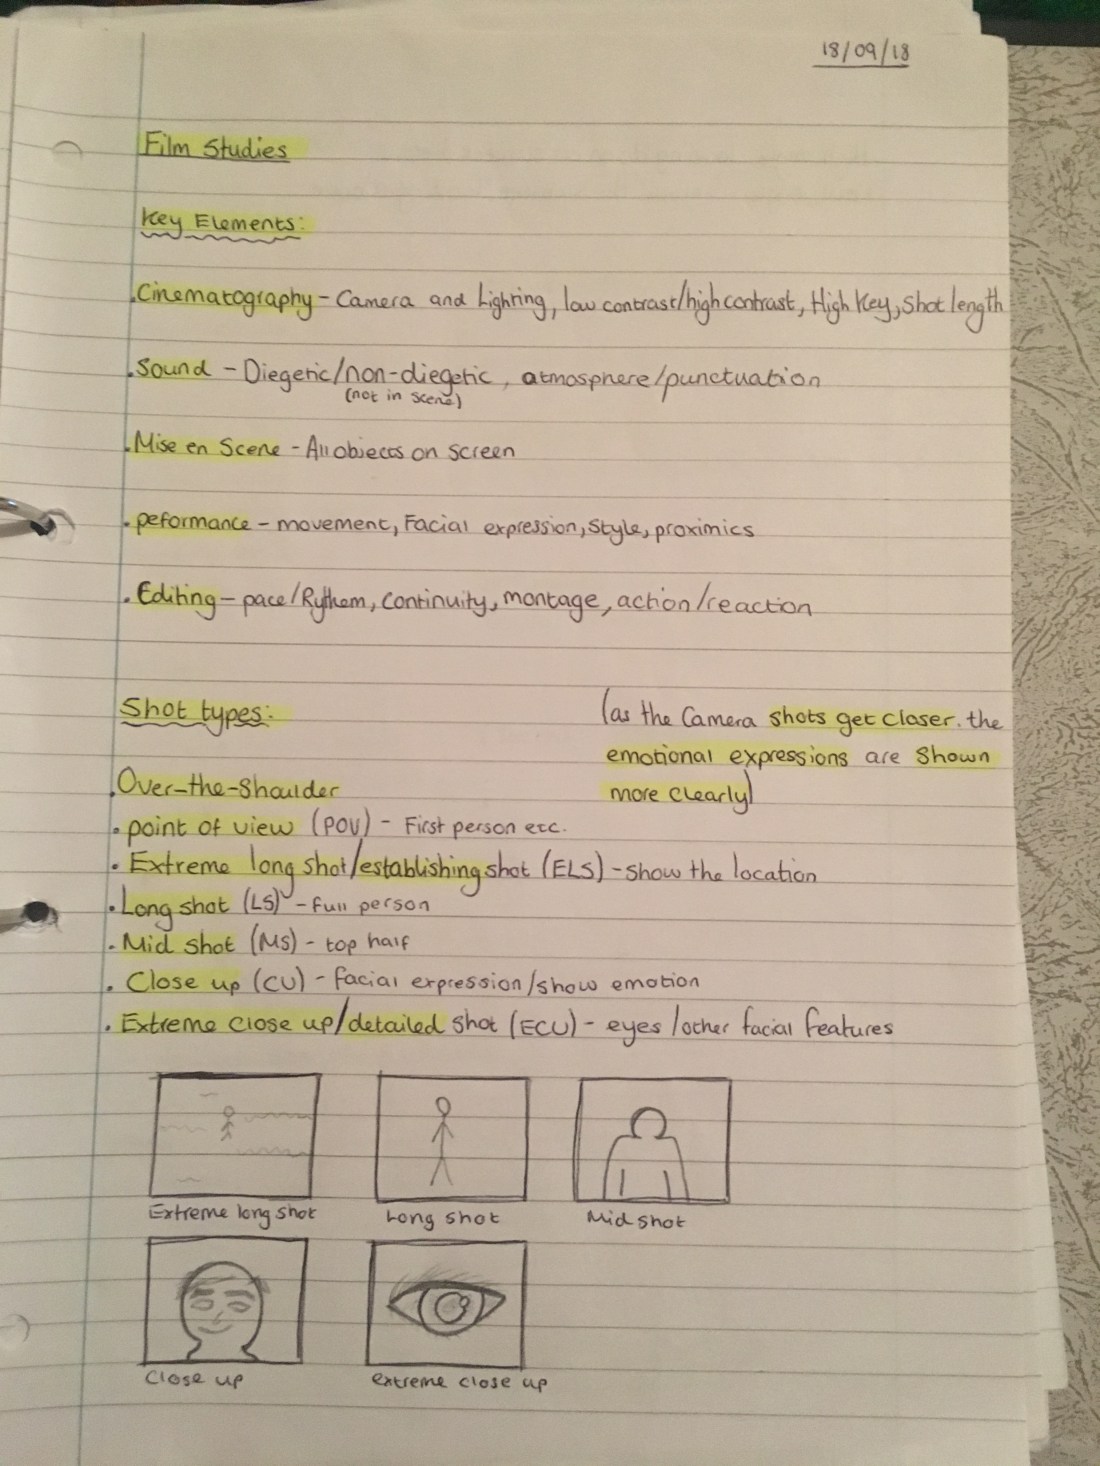 18/09/18
Film Studies
Key Elements:
.Cinematography - Camera and Lighting, low contrast/high contrast, High Key, Shot length
.Sound - Diegetic/non-diegetic, atmosphere/punctuation
(not in scene)
.Mise en Scene - All objects on screen
.peformance - movement, Facial expression, Style, proximics
.Editing - pace/Rythem, continuity, montage, action/reaction
Shot types:
(as the Camera shots get closer. the
emotional expressions are shown
more clearly)
.Over-the-Shoulder
.point of view (POV) - First person etc.
.Extreme long shot/establishing shot (ELS) - show the location
.Long shot (LS) - full person
.Mid shot (MS) - top half
.Close up (CU) - facial expression/show emotion
.Extreme close up/detailed shot (ECU) - eyes/other facial features
Extreme long shot
Long shot
Mid shot
Close up
extreme close up